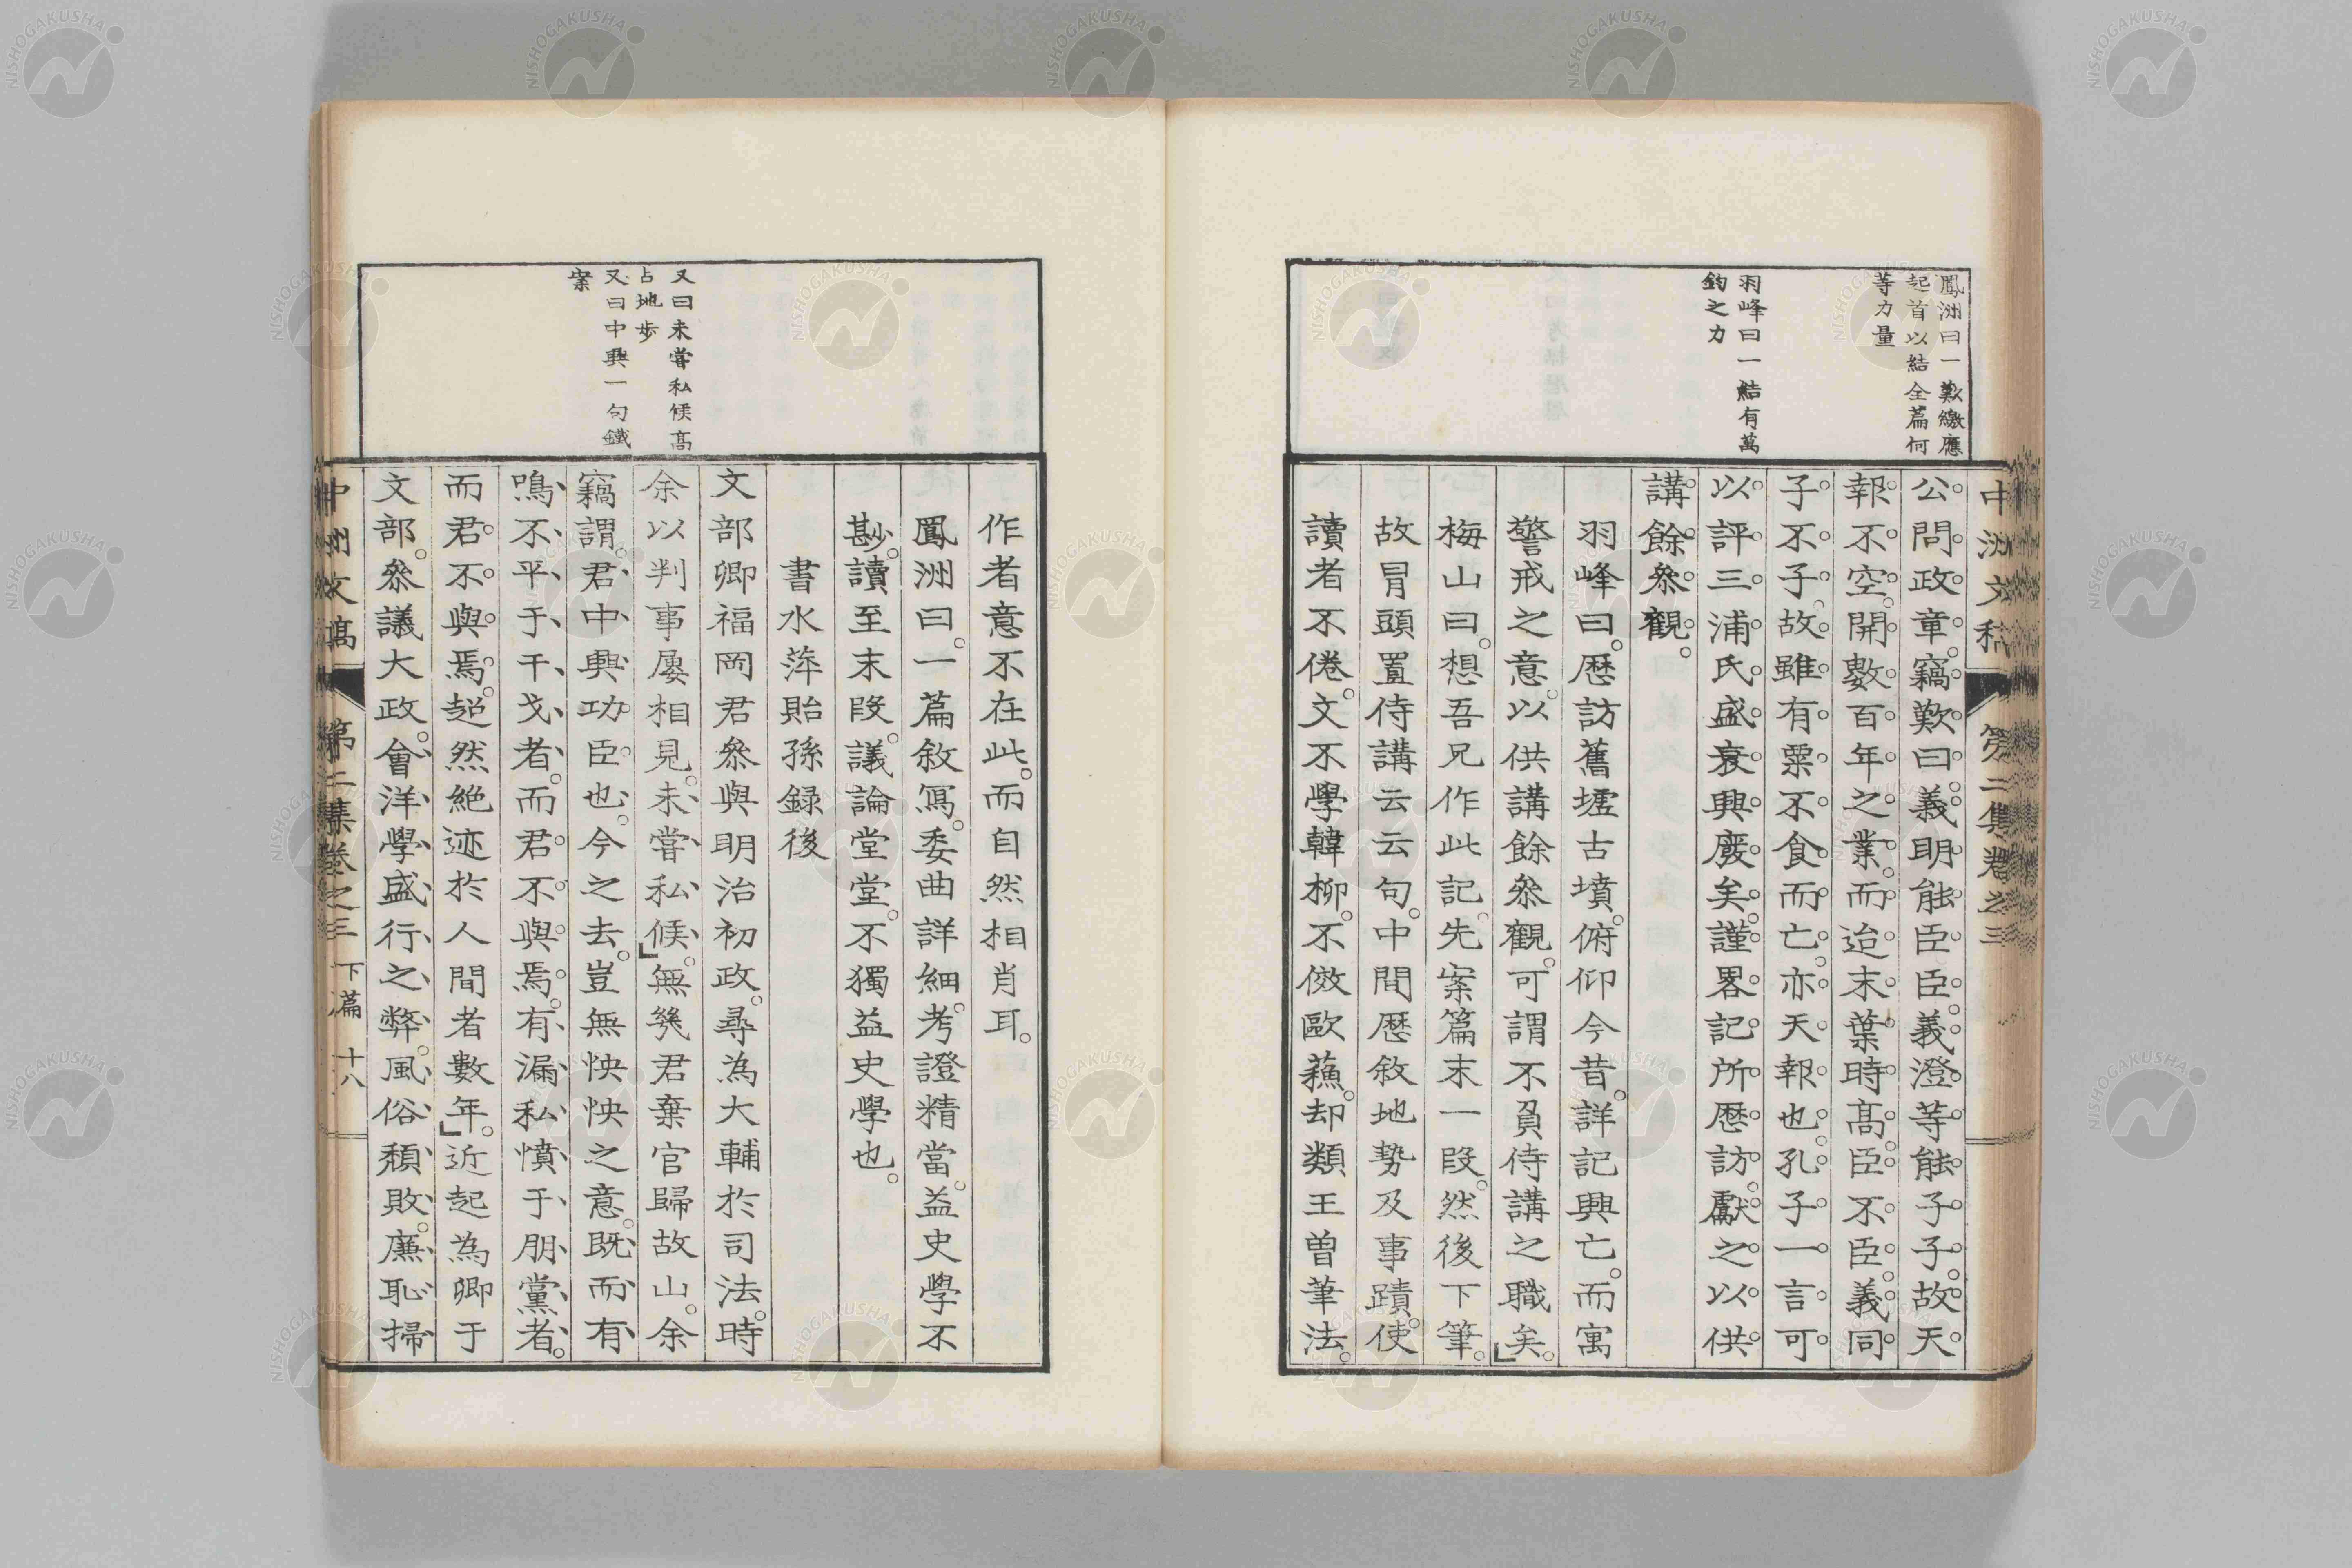 鳳洲曰一歎繳應
起首以結全篇何
等力量
羽峰曰一結有萬
鈞之力
中洲文稿 第二集卷之三
公問政章竊歎曰義明能臣臣義澄等能子子故天
報不空開數百年之業而迨末葉時高臣不臣義同
子不子故雖有粟不食而亡亦天報也孔子一言可
以評三浦氏盛衰興廢矣謹畧記所歷訪獻之以供
講餘叅觀。
羽峰曰。歷訪舊墟古墳。俯仰今昔。詳記興亡。而寓
警戒之意。以供講餘叅觀。可謂不負侍講之職矣。
梅山曰。想吾兄作此記。先案篇末一段。然後下筆。
故冐頭置侍講云云句。中間歷敘地勢及事蹟。使
讀者不倦。文不學韓柳。不傚歐蘓。却類王曾筆法。
又曰未嘗私候高
占地歩
又曰中興一句鐵
案
作者意不在此。而自然相肖耳。
鳳洲曰。一篇敘冩。委曲詳細。考證精當。益史學不
尠。讀至末段。議論堂堂。不獨益史學也。
書水萍貽孫録後
文部卿福岡君叅與明治初政。尋為大輔於司法。時
余以判事屢相見。未嘗私候。無幾君棄官歸故山。余
竊謂。君中興功臣也。今之去。豈無怏怏之意。既而有
鳴不平于干戈者。而君不與焉。有漏私憤于朋黨者。
而君不與焉。超然絶迹於人間者數年。近起為卿于
文部。叅議大政。會洋學盛行之弊。風俗頽敗。廉恥掃
中洲文稿 第二集卷之三 下篇 十八